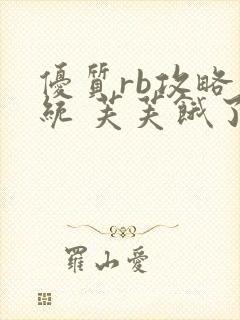 優質rb攻略
統 芙芙餓了
羅山愛